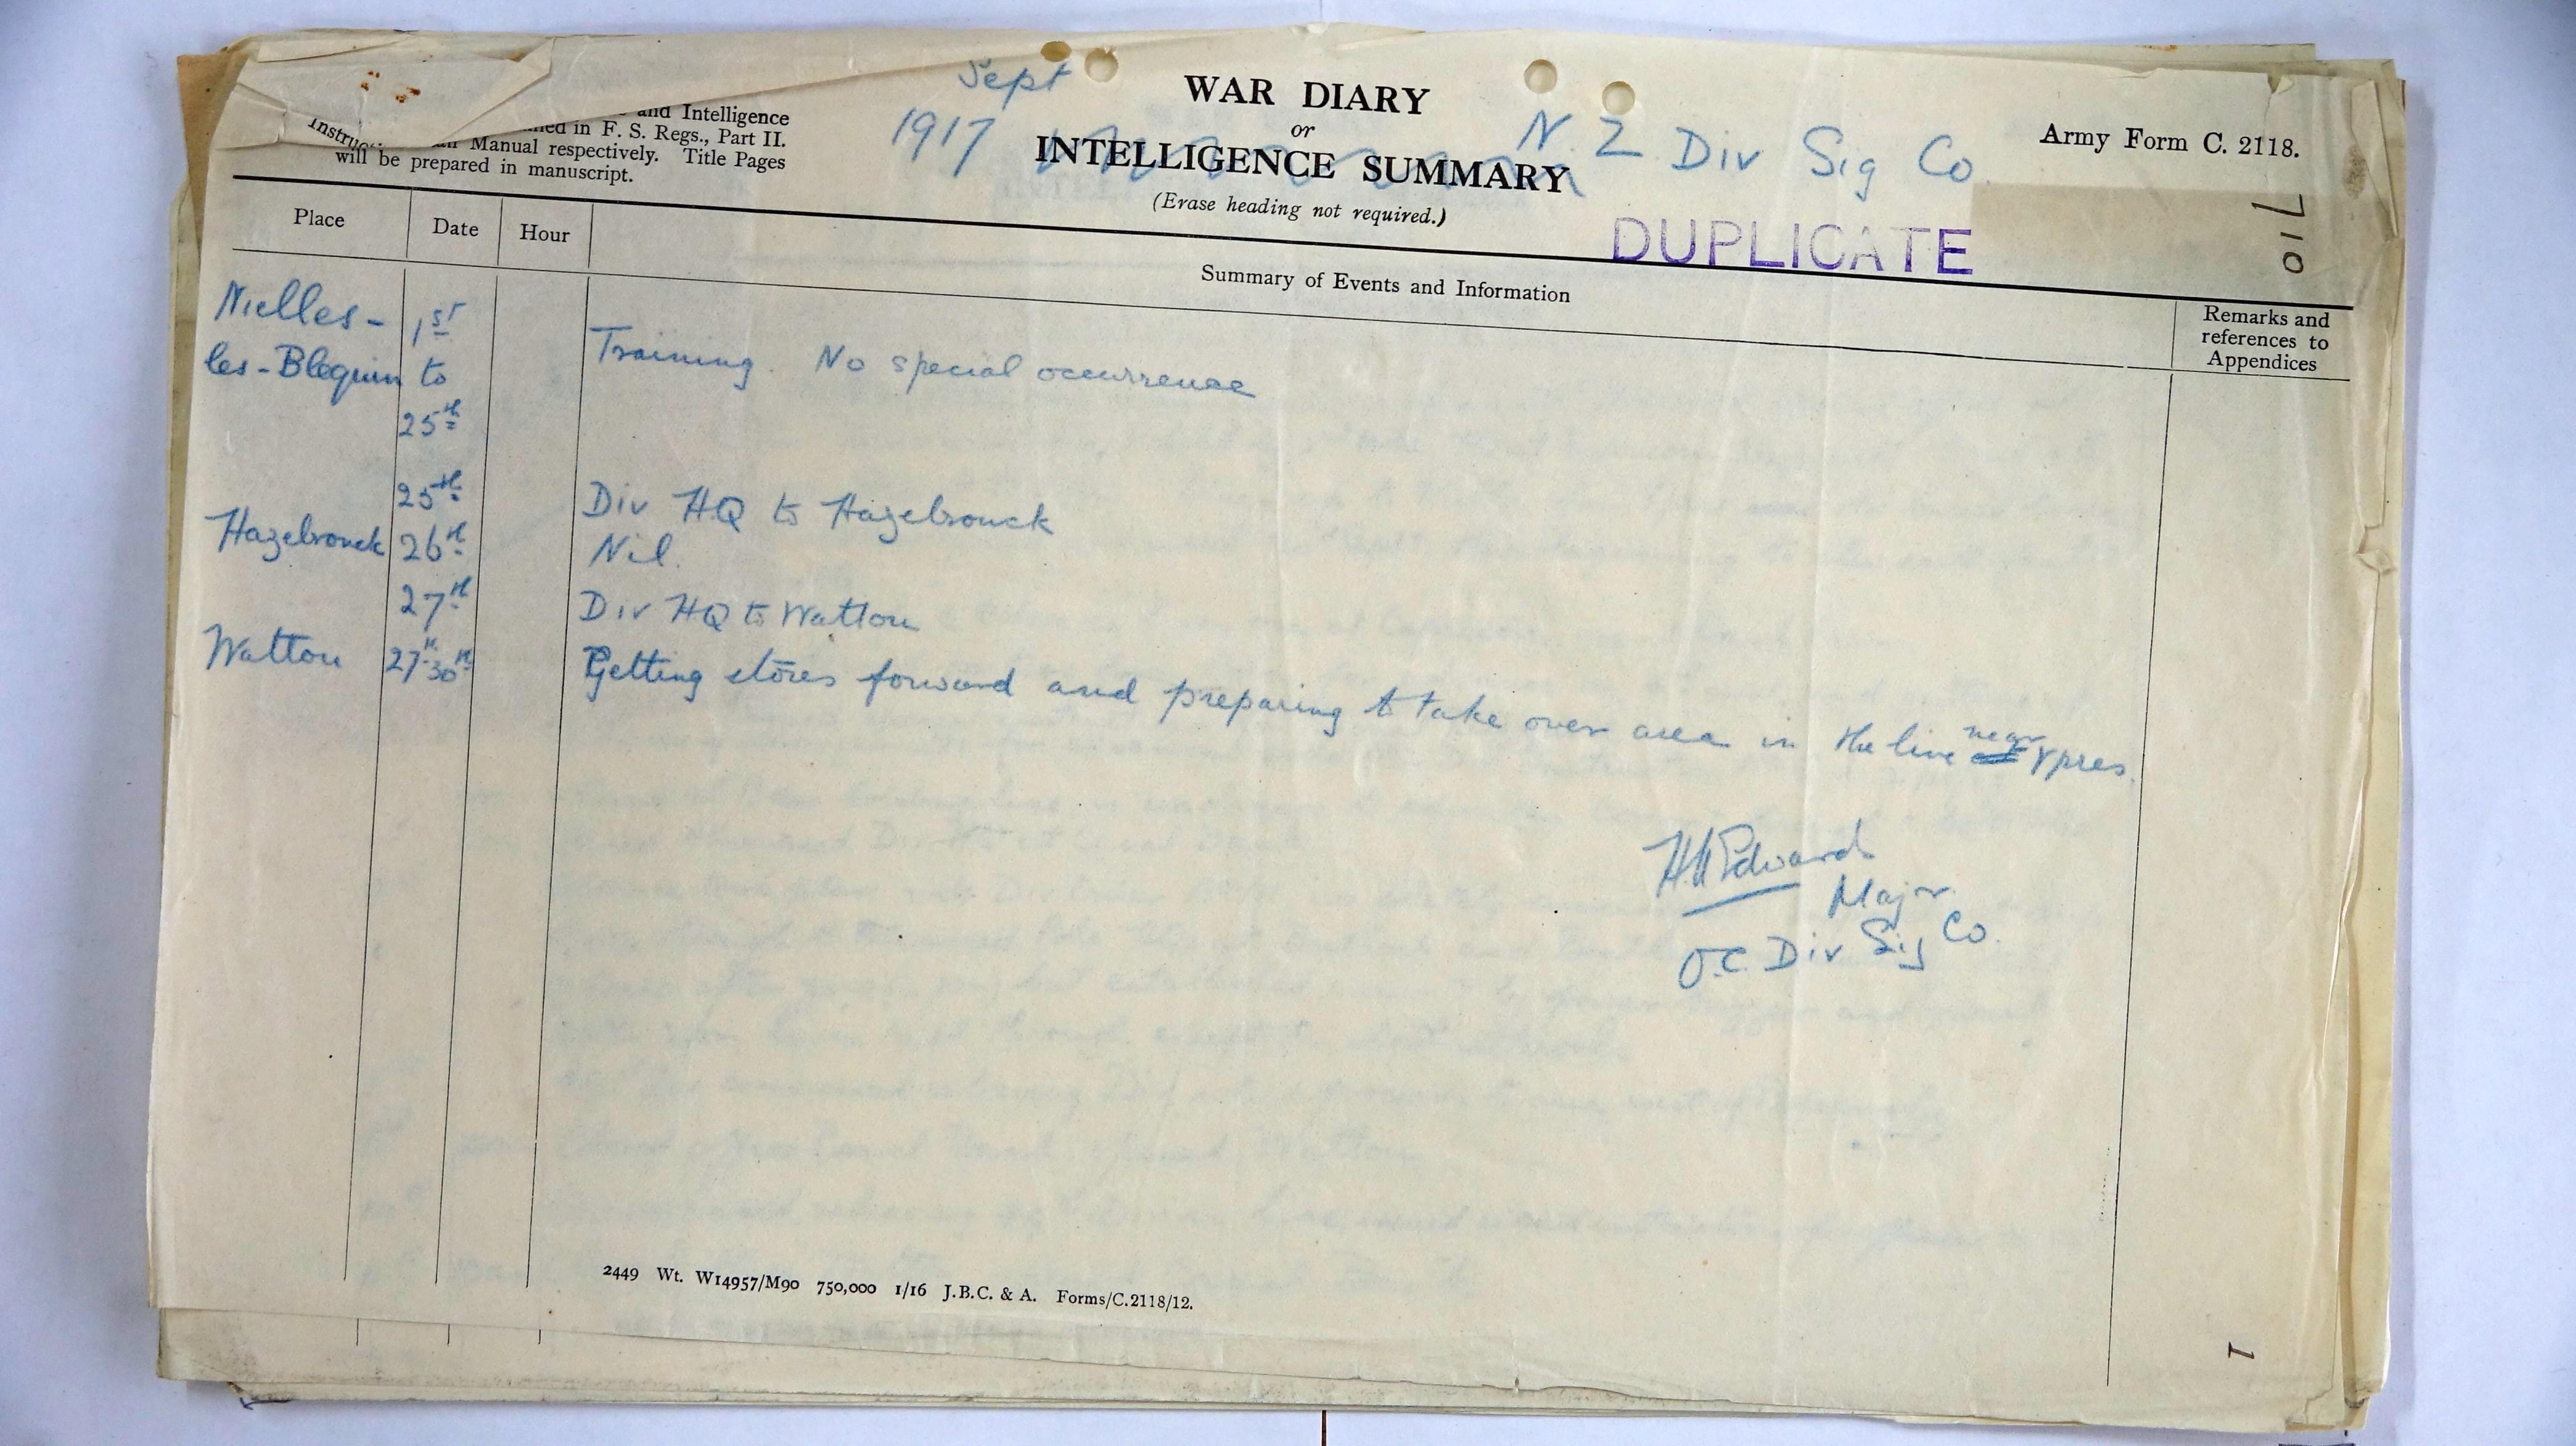 Sept
1917
WAR DIARY
or
INTELLIGENCE SUMMARY
(Erase heading not required.)
N.Z Div Sig Co.
Army Form C. 2118.
and Intelligence
in F. S. Regs., Part II.
Manual respectively. Title Pages
will be prepared in manuscript.
DUPLICATE
Place
Date
Hour
Summary of Events and Information
Remarks and
references to
Appendices
Nielles- 1st
les-Blequin to Training. No special occurrence
25th
25th Div HQ to Hazebrouck
Hazebrouck 26th Nil.
27th Div HQ to Watton
Watton 27th-30th Getting stores forward and preparing to take over area in the line near Ypres.
Edwards
Major
O.C. Div Sig Co.
2449 Wt. W14957/M90 750,000 1/16 J.B.C. & A. Forms/C.2118/12.
1